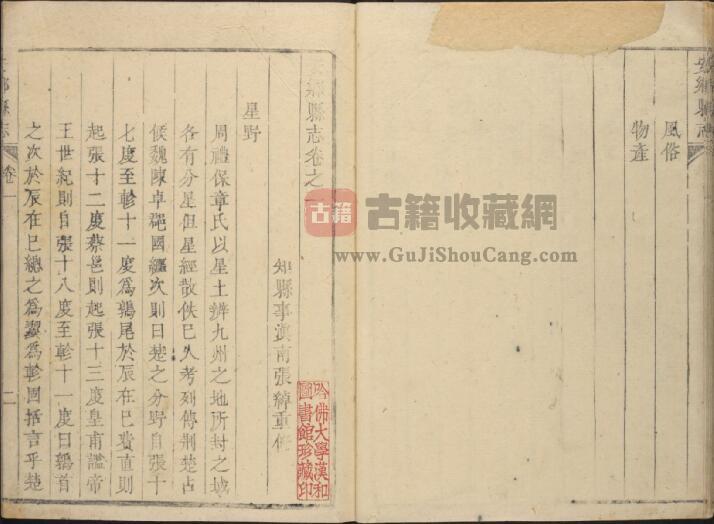 安鄉縣志
風俗
物産
安鄉縣志卷之一
知縣事滇南張綽重修
星野
周禮保章氏以星土辨九州之地所封之域
各有分星但星經散佚已久考列傳荆楚占
候魏陳卓郡國躔次則曰楚之分野自張十
七度至軫十一度為鶉尾於辰在巳費直則
起張十二度蔡邕則起張十三度皇甫謐帝
王世紀則自張十八度至軫十一度曰鶉首
之次於辰在巳總之為翼為軫固括言乎楚
鄉縣志
卷一
二
古籍
古籍收藏網
www.GuJiShouCang.com
哈佛大學漢和
圖書館珍藏印